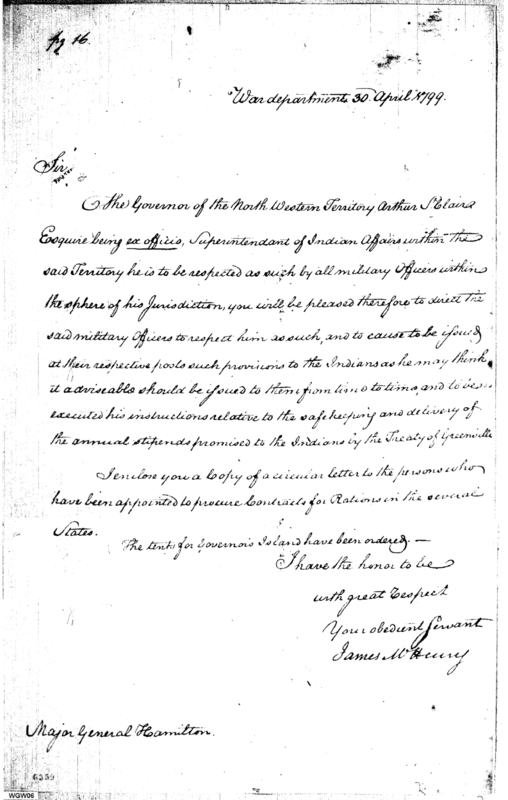 pg 16.
War department 30 April 1799.
Sir
The Governor of the North Western Territory Arthur St Clair
Esquire being ex officio, Superintendant of Indian Affairs within the
said Territory he is to be respected as such by all military Officers within
the sphere of his Jurisdiction, you will be pleased therefore to direct the
said military Officers to respect him as such, and to cause to be issued
at their respective posts such provisions to the Indians as he may think
it adviseable should be issued to them from time to time, and to
executed his instructions relative to the safe keeping and delivery of
the annual stipends promised to the Indians by the Treaty of Greenville
I enclose you a Copy of a circular letter to the persons who
have been appointed to procure Contracts for Rations in the several
States.
The tents for Governors Island have been ordered. —
I have the honor to be
with great respect
Your obedient Servant
James McHenry
Major General Hamilton.
6359
WGW06